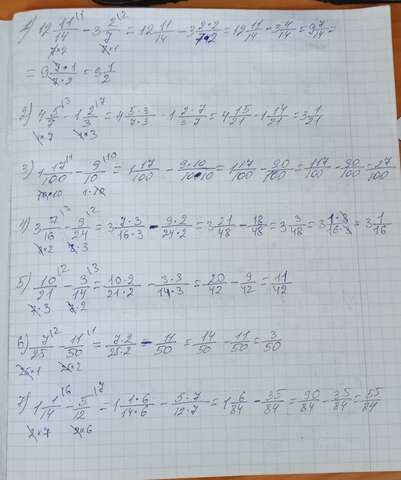 1) 12 11/14 - 3 2/7 = 12 11/14 - 3 2·2/7·2 = 12 11/14 - 3 4/14 = 9 7/14 =
7·2 7·1
= 9 7·1/7·2 = 9 1/2
2) 4 5/7 - 1 2/3 = 4 5·3/7·3 - 1 2·7/3·7 = 4 15/21 - 1 14/21 = 3 1/21
3) 1 17/100 - 9/10 = 1 17/100 - 9·10/10·10 = 1 17/100 - 90/100 = 117/100 - 90/100 = 27/100
4) 3 7/16 - 9/24 = 3 7·3/16·3 - 9·2/24·2 = 3 21/48 - 18/48 = 3 3/48 = 3 1·3/16·3 = 3 1/16
5) 10/21 - 3/14 = 10·2/21·2 - 3·3/14·3 = 20/42 - 9/42 = 11/42
7·3 7·2
6) 7/25 - 11/50 = 7·2/25·2 - 11/50 = 14/50 - 11/50 = 3/50
25·1 25·2
7) 1 1/14 - 5/12 = 1 1·6/14·6 - 5·7/12·7 = 1 6/84 - 35/84 = 90/84 - 35/84 = 55/84
2·7 2·6